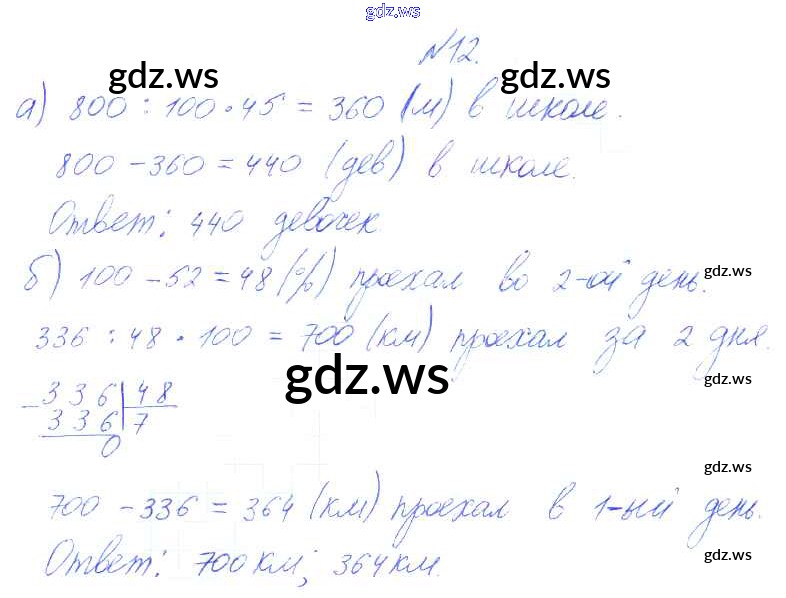 gdz.ws
№12.
gdz.ws gdz.ws
а) 800 : 100 · 45 = 360 (м) в школе.
800 - 360 = 440 (дев) в школе.
Ответ: 440 девочек
б) 100 - 52 = 48 (%) проехал во 2-ой день.
gdz.ws
336 : 48 · 100 = 700 (км) проехал за 2 дня.
gdz.ws gdz.ws
336 48
336 7
0
gdz.ws
700 - 336 = 364 (км) проехал в 1-ый день.
Ответ: 700 км; 364 км.
gdz.ws